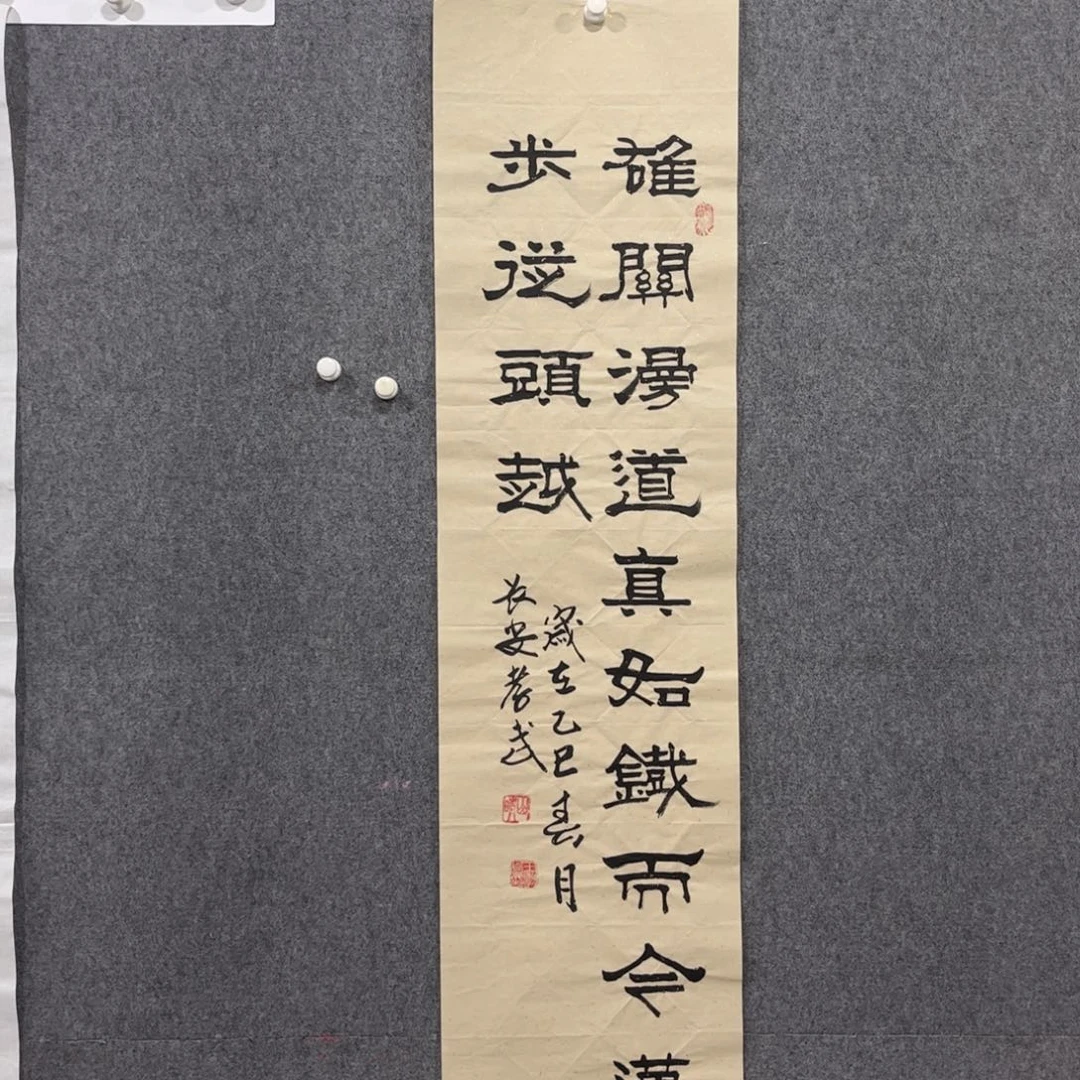 雄關漫道真如鐵而今
步從頭越
歲在乙巳春月
長安孝武